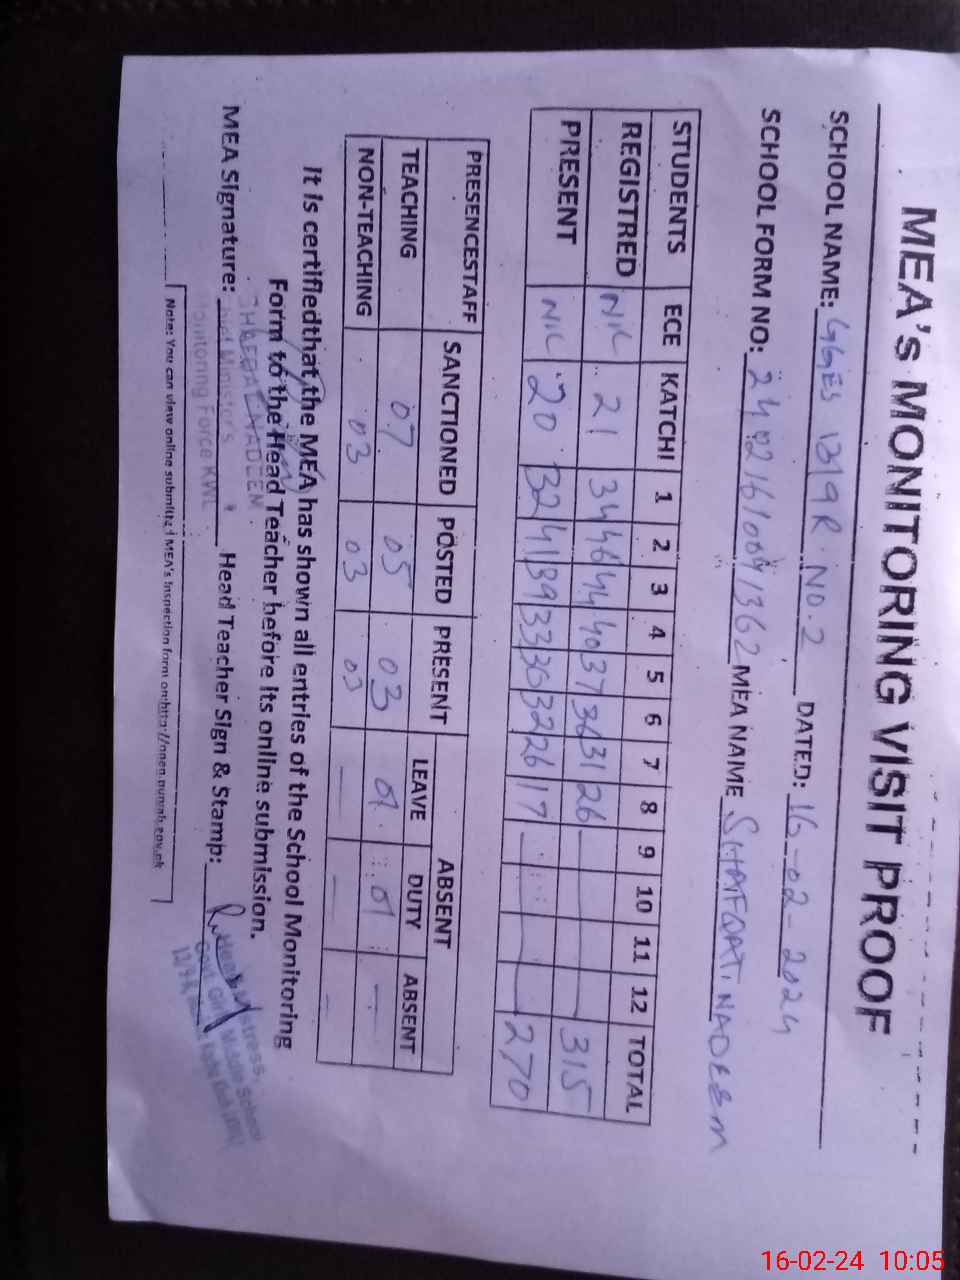 MEA's MONITORING VISIT PROOF
SCHOOL NAME: GGES 12/9R. NO.2 DATED: 16-02-2024
SCHOOL FORM NO: MEA NAME SHAFQAT NADEEM
STUDENTS ECE KATCHI 1 2 3 4 5 6 7 8 9 10 11 12 TOTAL
REGISTRED NIL 21 34 46 44 40 37 36 31 26 315
PRESENT NIL 20 32 41 39 33 30 32 26 17 270
PRESENCESTAFF SANCTIONED POSTED PRESENT ABSENT
LEAVE DUTY ABSENT
TEACHING 07 05 03 01 01 —
NON-TEACHING 03 03 03 — — —
It is certifiedthat the MEA has shown all entries of the School Monitoring
Form to the Head Teacher before its online submission.
SHAFQAT NADEEM
MEA Signature: Chief Minister's Head Teacher Sign & Stamp:
Monitoring Force KWL
Headmistress,
Govt. Girls Middle School
Note: You can view online submitted MEA's inspection form on:
16-02-24 10:05